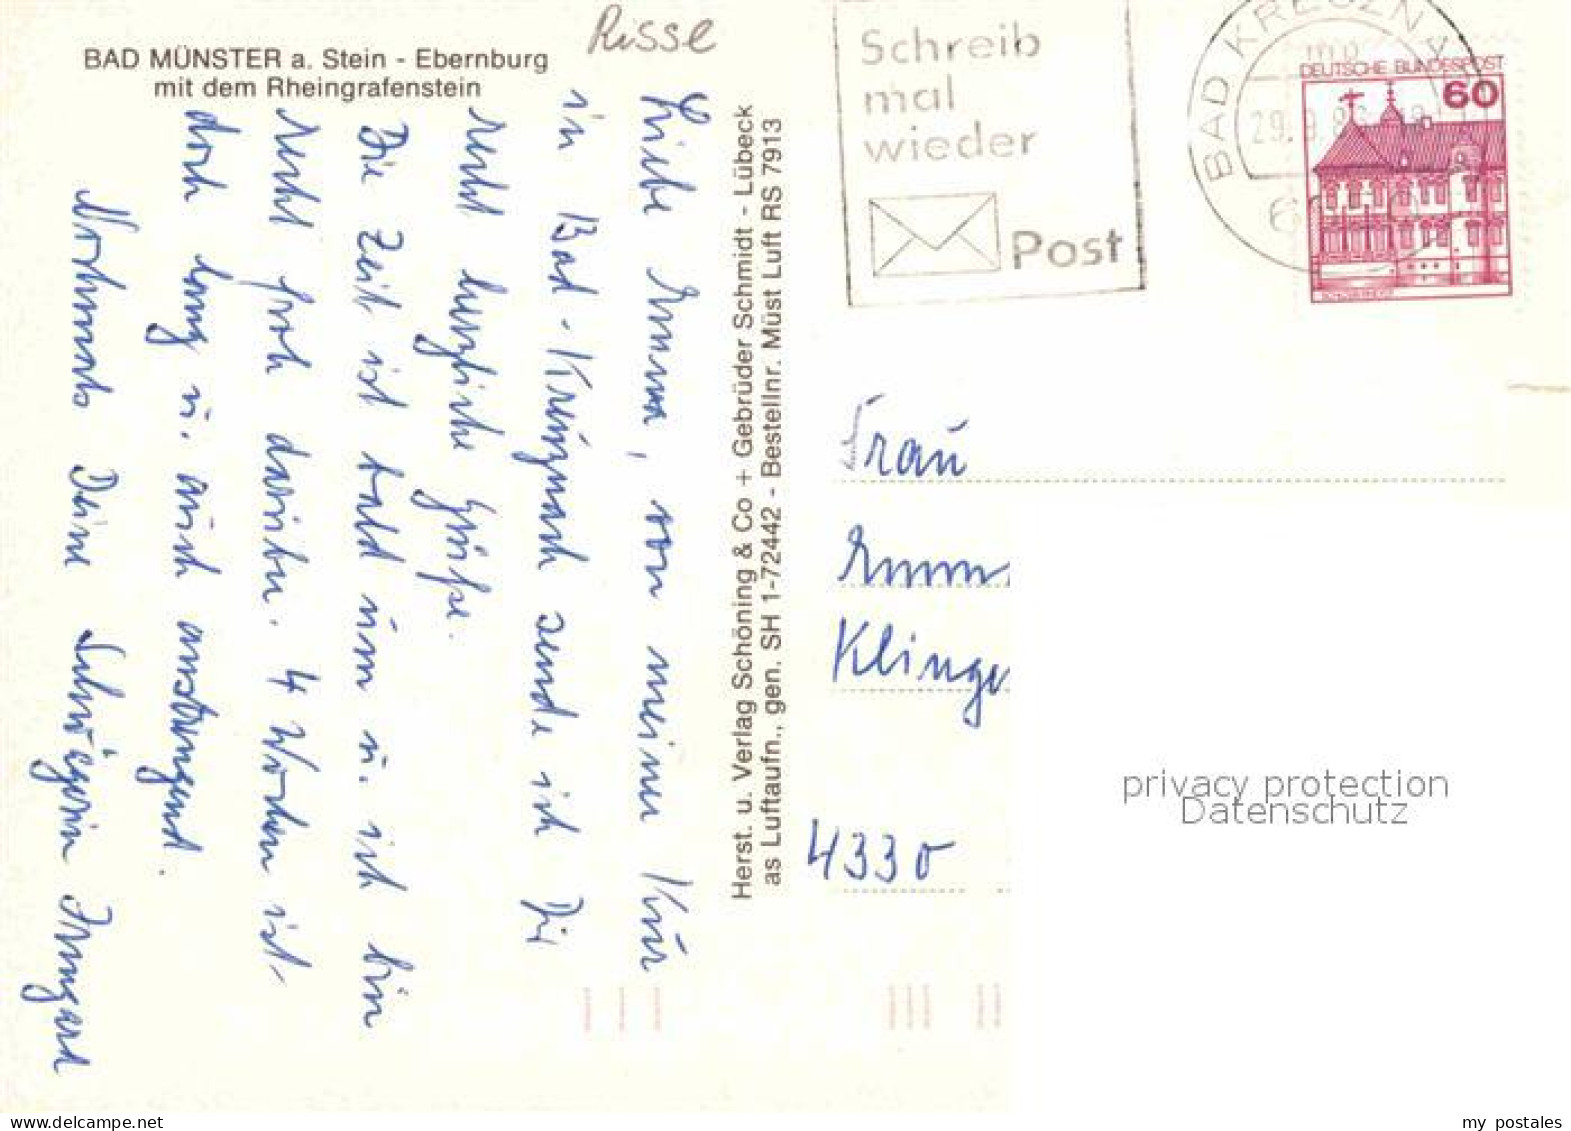 BAD MÜNSTER a. Stein - Ebernburg
mit dem Rheingrafenstein
Risse
Liebe Emma, von meiner Kur
in Bad-Kreuznach sende ich Dir
recht herzliche Grüße.
Die Zeit ist bald um u. ich bin
recht froh darüber. 4 Wochen ist
doch lang u. auch anstrengend.
Nochmals Deine Schwägerin Irmgard
Herst. u. Verlag Schöning & Co + Gebrüder Schmidt - Lübeck
as Luftaufn., gen. SH 1-72442 - Bestellnr. Müst Luft RS 7913
Schreib
mal
wieder
Post
BAD KREUZN
29.9.86
DEUTSCHE BUNDESPOST
60
Frau
Emm
Klinge
4330
privacy protection
Datenschutz
delcampe.net
my_postales